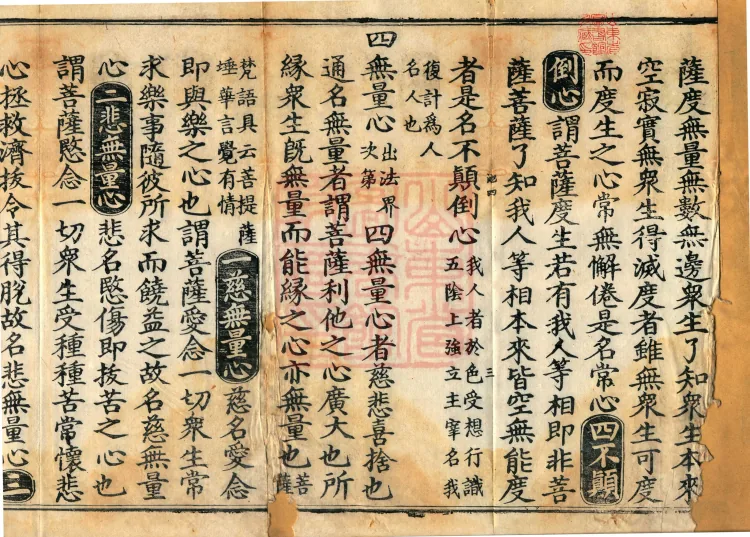 薩度無量無數無邊衆生了知衆生本來
空寂實無衆生得滅度者雖無衆生可度
而度生之心常無懈倦是名常心四不顛
倒心謂菩薩度生若有我人等相即非菩
薩菩薩了知我人等相本來皆空無能度
者是名不顛倒心我人者於色受想行識五陰上強立主宰名我
復計爲人名人也
三
四無量心出法界次第四無量心者慈悲喜捨也
通名無量者謂菩薩利他之心廣大也所
緣衆生旣無量而能緣之心亦無量也菩薩
梵語具云菩提薩埵華言覺有情一慈無量心慈名愛念
即與樂之心也謂菩薩愛念一切衆生常
求樂事隨彼所求而饒益之故名慈無量
心二悲無量心悲名愍傷即拔苦之心也
謂菩薩愍念一切衆生受種種苦常懷悲
心拯救濟拔令其得脫故名悲無量心三